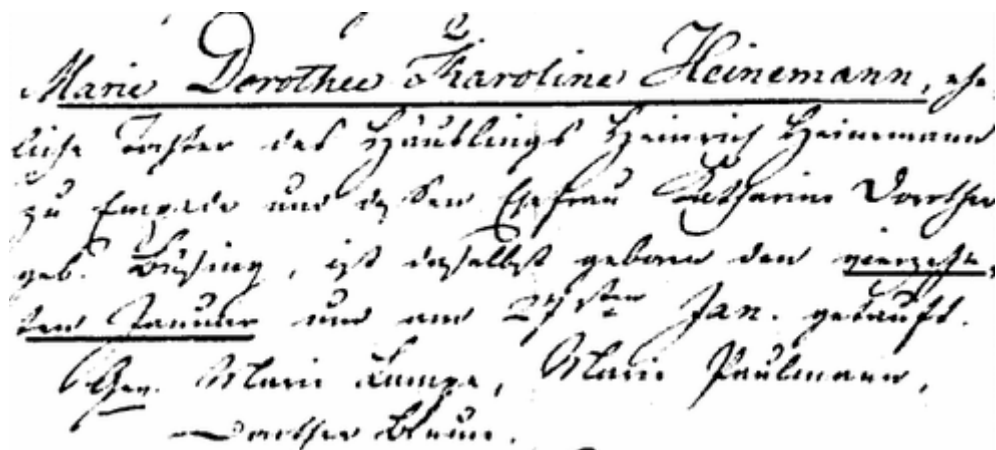 Marie Dorothee Karoline Heinemann, ehe,
liche Tochter des Häuslings Heinrich Heinemann
zu Empede und dessen Ehefrau Catharine Dorothee
geb. Büsing, ist daselbst geboren den vierzehn,
ten Januar und am 27sten Jan. getauft.
Gev. Marie Lampe, Marie Paulmann,
Dorothee